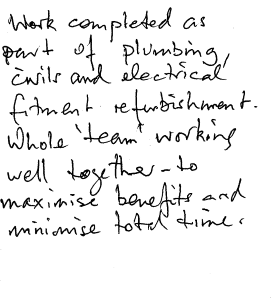 Work completed as
part of plumbing,
civils and electrical
fitment refurbishment.
Whole 'team' working
well together - to
maximise benefits and
minimise total time.